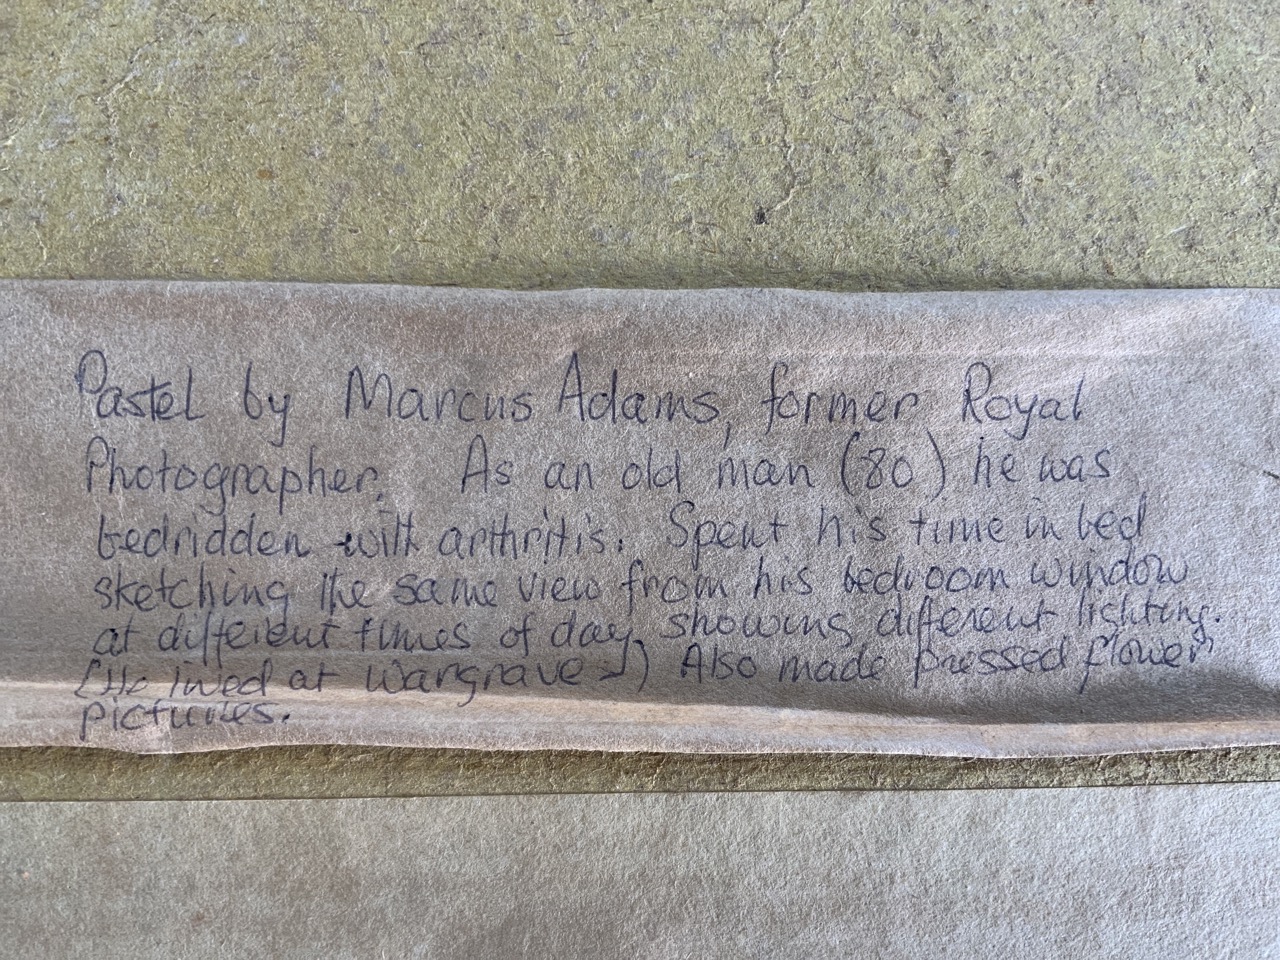 Pastel by Marcus Adams, former Royal
Photographer. As an old man (80) he was
bedridden with arthritis. Spent his time in bed
sketching the same view from his bedroom window
at different times of day, showing different lighting.
(He lived at Wargrave) Also made pressed flower
pictures.